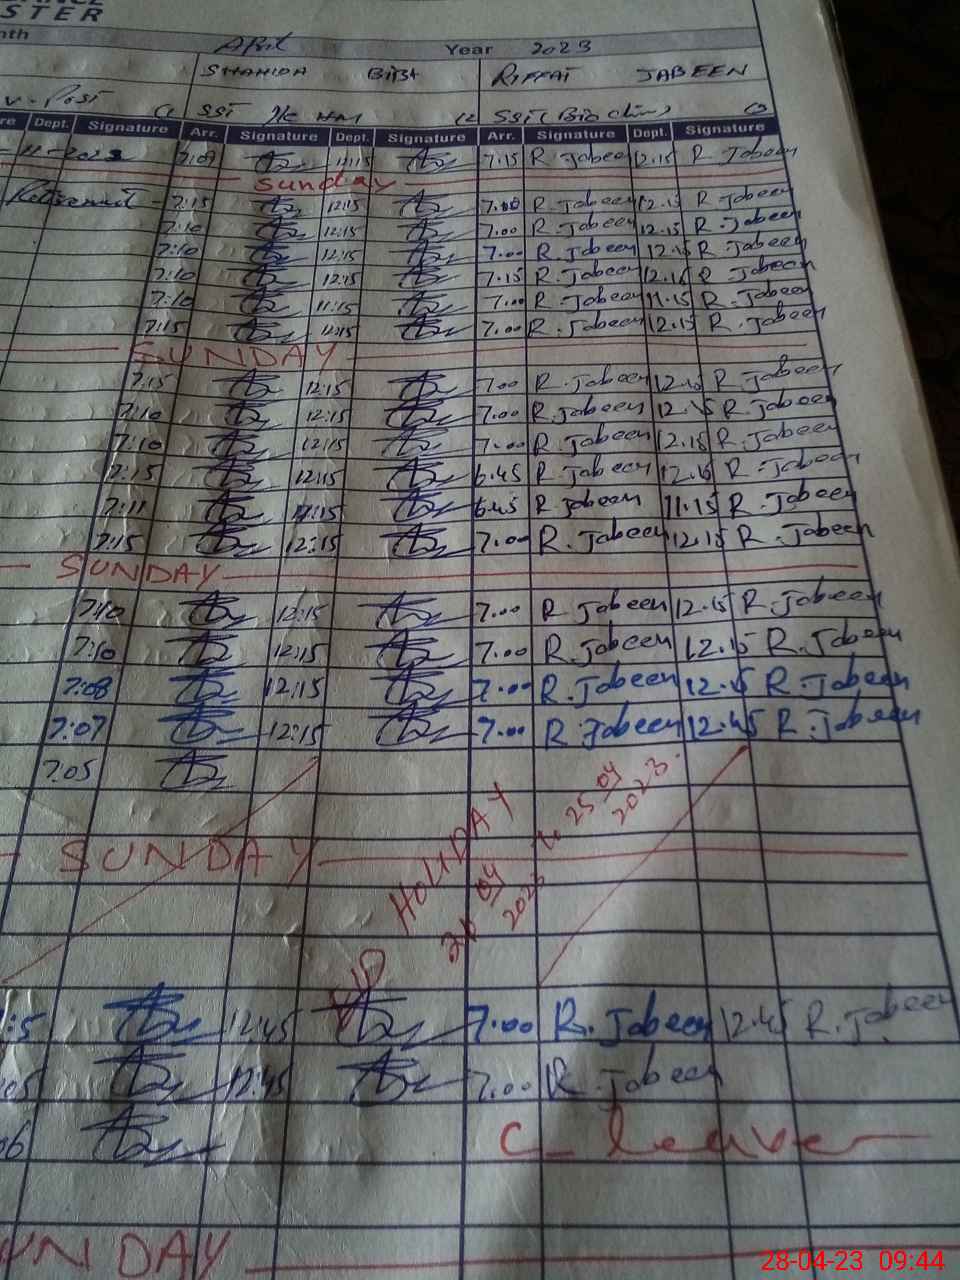 STER
nth April Year 2023
SHAHIDA BIBI RIFFAT JABEEN
V-Post SST I/C HM SST (Bio Chim)
re Dept. Signature Arr. Signature Dept. Signature Arr. Signature Dept. Signature
7:09 12:15 7.15 R. Jabeen 12.15 R. Jabeen
Sunday
Retirement 7:15 12:15 7.00 R. Jabeen 12.15 R. Jabeen
7:10 12:15 7.00 R. Jabeen 12.15 R. Jabeen
7:10 12:15 7.00 R. Jabeen 12.15 R. Jabeen
7:10 12:15 7.15 R. Jabeen 12.15 R. Jabeen
7:10 11:15 7.00 R. Jabeen 11.15 R. Jabeen
7:15 12:15 7.00 R. Jabeen 12.15 R. Jabeen
SUNDAY
7:15 12:15 7.00 R. Jabeen 12.15 R. Jabeen
7:10 12:15 7.00 R. Jabeen 12.15 R. Jabeen
7:10 12:15 7.00 R. Jabeen 12.15 R. Jabeen
7:15 12:15 6.45 R. Jabeen 12.15 R. Jabeen
7:11 11:15 6.45 R. Jabeen 11.15 R. Jabeen
7:15 12:15 7.00 R. Jabeen 12.15 R. Jabeen
SUNDAY
7:10 12:15 7.00 R. Jabeen 12.15 R. Jabeen
7:10 12:15 7.00 R. Jabeen 12.15 R. Jabeen
7:08 12:15 7.00 R. Jabeen 12.15 R. Jabeen
7:07 12:15 7.00 R. Jabeen 12.45 R. Jabeen
7:05
HOLIDAY
25 04 2023
SUNDAY
04 2023
12:45 7.00 R. Jabeen 12.45 R. Jabeen
05 12:45 7.00 R. Jabeen
06 C_ leave
UNDAY
28-04-23 09:44